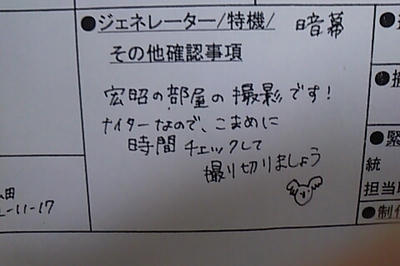 ●ジェネレーター/特機/ 暗幕
その他確認事項
宏昭の部屋の撮影です!
ナイターなので、こまめに
時間チェックして
撮り切りましょう
田
-11-17
●
●
●緊
統
担当
●制作